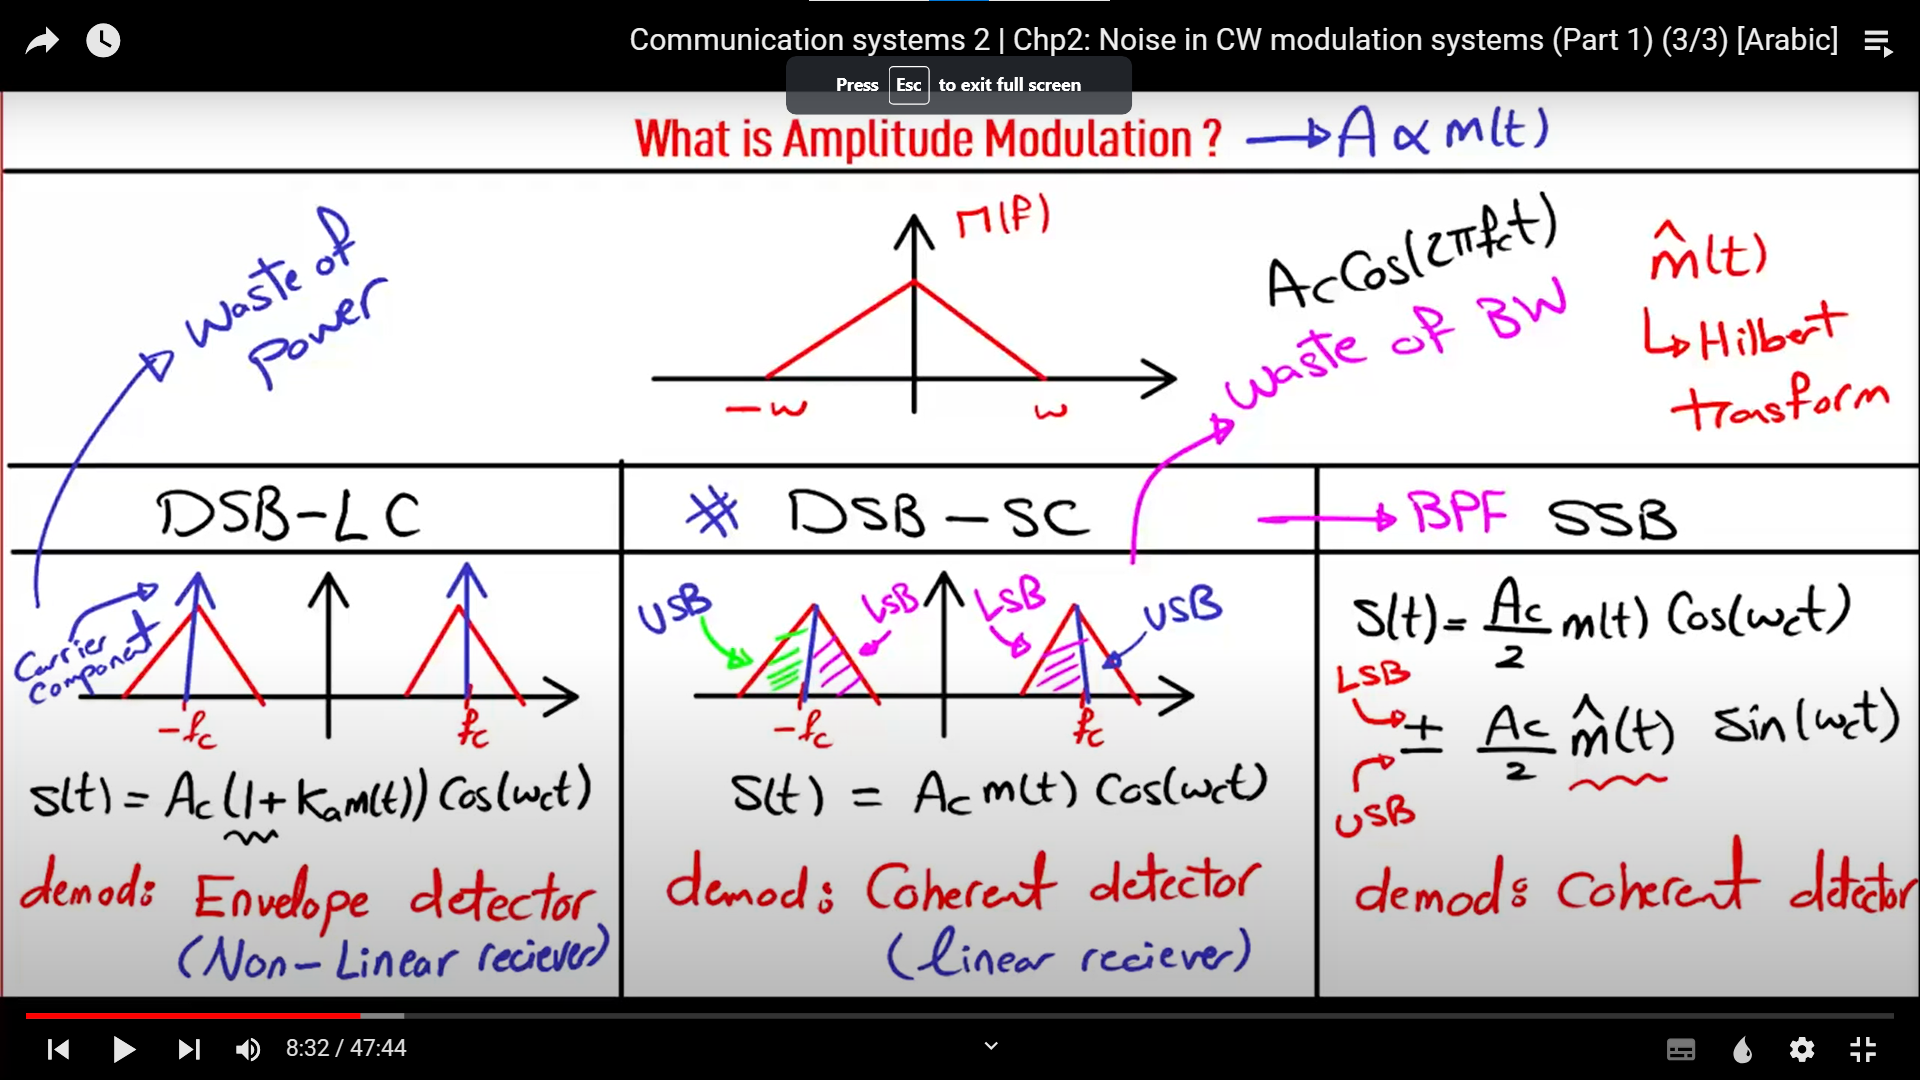 Communication systems 2 | Chp2: Noise in CW modulation systems (Part 1) (3/3) [Arabic]
Press Esc to exit full screen
What is Amplitude Modulation ? → A ∝ m(t)
Waste of
power
M(f)
-w
w
Ac Cos(2πfct)
Waste of BW
m̂(t)
↳ Hilbert
trasform
DSB-LC
# DSB-SC
→ BPF SSB
Carrier
component
-fc
fc
S(t) = Ac (1+ Kam(t)) Cos(wct)
demod: Envelope detector
(Non-Linear reciever)
USB
LSB
LSB
USB
-fc
fc
S(t) = Ac m(t) Cos(wct)
demod: Coherent detector
(linear reciever)
S(t)= Ac/2 m(t) Cos(wct)
LSB
± Ac/2 m̂(t) Sin(wct)
USB
demod: Coherent detector
8:32 / 47:44